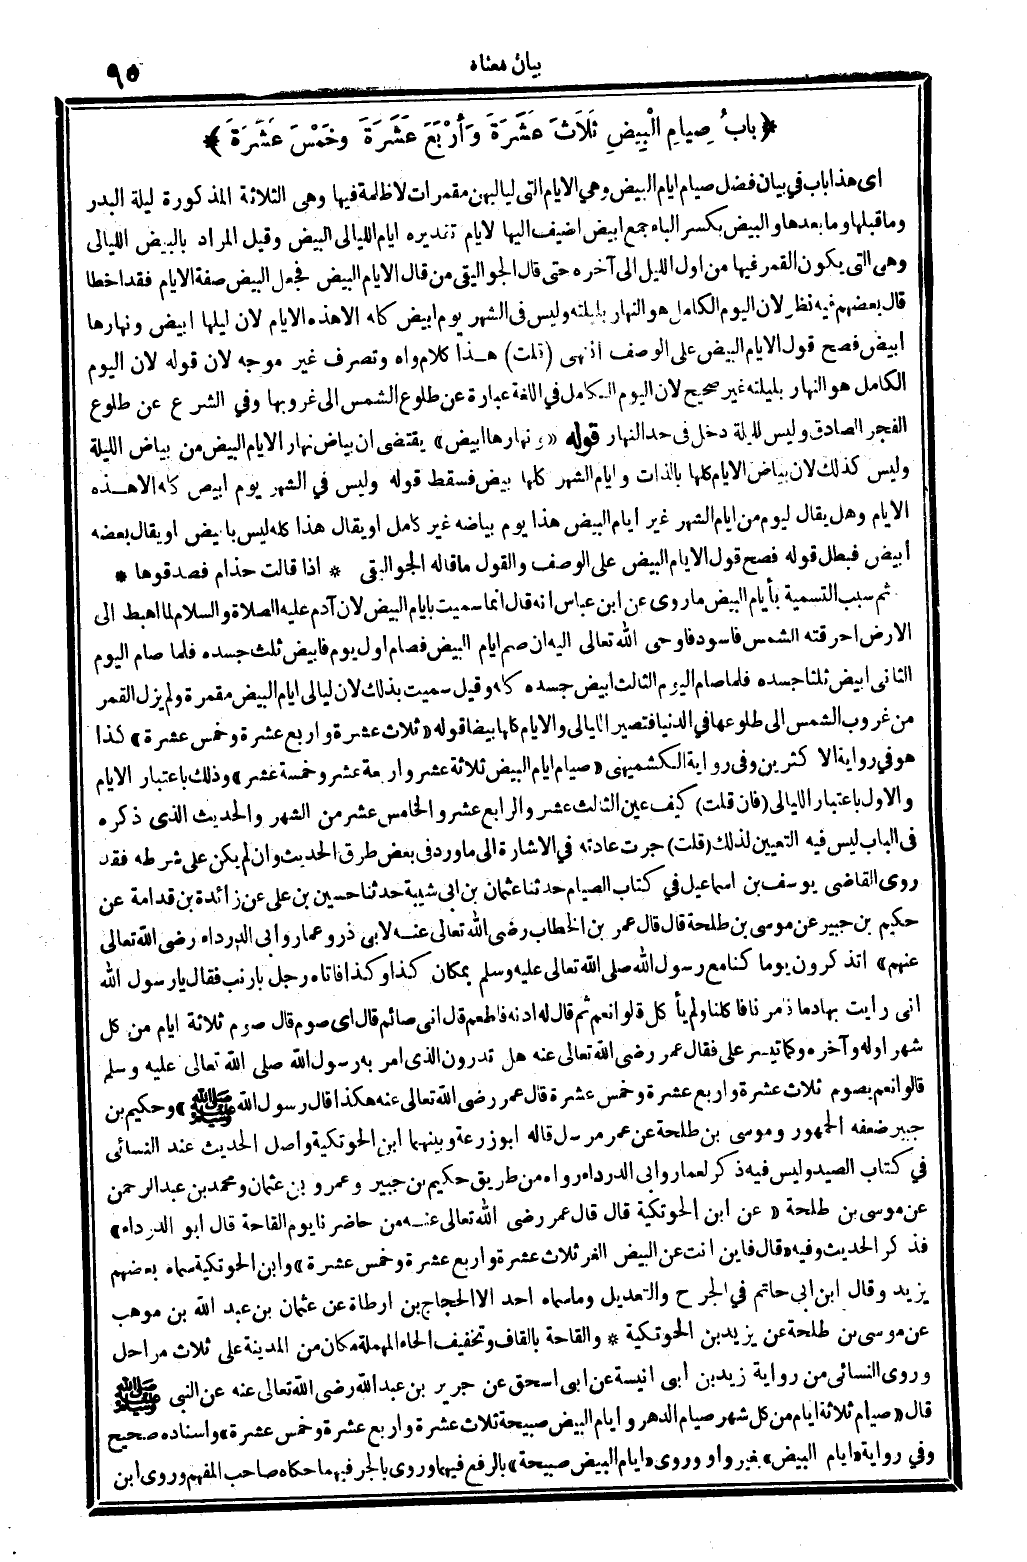 بيان معناه
٩٥
﴿ بابُ صِيامِ الْبِيضِ ثَلَاثَ عَشَرَةَ وَأَرْبَعَ عَشَرَةَ وَخَمْسَ عَشَرَةَ ﴾
اى هذا باب في بيان فضل صيام ايام البيض وهي الايام التى لياليهن مقمرات لا ظلمة فيها وهى الثلاثة المذكورة ليلة البدر
وما قبلها وما بعدها والبيض بكسر الباء جمع ابيض اضيف اليها لايام تقديره ايام الليالى البيض وقيل المراد بالبيض الليالى
وهى التى يكون القمر فيها من اول الليل الى آخره حتى قال الجواليقى من قال الايام البيض فجعل البيض صفة الايام فقد اخطا
قال بعضهم فيه نظر لان اليوم الكامل هو النهار بليلته وليس فى الشهر يوم ابيض كله الا هذه الايام لان ليلها ابيض ونهارها
ابيض فصح قول الايام البيض على الوصف انتهى (قلت) هذا كلام واه وتصرف غير موجه لان قوله لان اليوم
الكامل هو النهار بليلته غير صحيح لان اليوم الكامل في اللغة عبارة عن طلوع الشمس الى غروبها وفي الشرع عن طلوع
الفجر الصادق وليس لليلة دخل فى حد النهار قوله «ونهارها ابيض» يقتضى ان بياض نهار الايام البيض من بياض الليلة
وليس كذلك لان بياض الايام كلها بالذات وايام الشهر كلها بيض فسقط قوله وليس في الشهر يوم ابيض كله الا هذه
الايام وهل يقال ليوم من ايام الشهر غير ايام البيض هذا يوم بياضه غير كامل او يقال هذا كله ليس بابيض او يقال بعضه
أبيض فبطل قوله فصح قول الايام البيض على الوصف والقول ما قاله الجواليقى * اذا قالت حذام فصدقوها *
ثم سبب التسمية بأيام البيض ما روى عن ابن عباس انه قال انما سميت بايام البيض لان آدم عليه الصلاة والسلام لما اهبط الى
الارض احرقته الشمس فاسود فاوحى الله تعالى اليه ان صم ايام البيض فصام اول يوم فابيض ثلث جسده فلما صام اليوم
الثانى ابيض ثلثا جسده فلما صام اليوم الثالث ابيض جسده كله وقيل سميت بذلك لان ليالى ايام البيض مقمرة ولم يزل القمر
من غروب الشمس الى طلوعها في الدنيا فتصير الليالى والايام كلها بيضا قوله «ثلاث عشرة واربع عشرة وخمس عشرة» كذا
هو في رواية الاكثرين وفى رواية الكشميهنى «صيام ايام البيض ثلاثة عشر واربعة عشر وخمسة عشر» وذلك باعتبار الايام
والاول باعتبار الليالى (فان قلت) كيف عين الثالث عشر والرابع عشر والخامس عشر من الشهر والحديث الذى ذكره
فى الباب ليس فيه التعيين لذلك (قلت) جرت عادته في الاشارة الى ما ورد فى بعض طرق الحديث وان لم يكن على شرطه فقد
روى القاضى يوسف بن اسماعيل في كتاب الصيام حدثنا عثمان بن ابى شيبة حدثنا حسين بن على عن زائدة بن قدامة عن
حكيم بن جبير عن موسى بن طلحة قال قال عمر بن الخطاب رضى الله تعالى عنه لابى ذر وعمار وابى الدرداء رضى الله تعالى
عنهم» اتذكرون يوما كنا مع رسول الله صلى الله تعالى عليه وسلم بمكان كذا وكذا فاتاه رجل بارنب فقال يارسول الله
انى رايت بها دما فامرنا فاكلنا ولم يأكل قالوا نعم ثم قال له ادنه فاطعم قال انى صائم قال اى صوم قال صوم ثلاثة ايام من كل
شهر اوله وآخره وكما تيسر على فقال عمر رضى الله تعالى عنه هل تدرون الذى امر به رسول الله صلى الله تعالى عليه وسلم
قالوا نعم بصوم ثلاث عشرة واربع عشرة وخمس عشرة قال عمر رضى الله تعالى عنه هكذا قال رسول الله ﷺ» وحكيم بن
جبير ضعفه الجمهور وموسى بن طلحة عن عمر مرسل قاله ابو زرعة وبينهما ابن الحوتكية واصل الحديث عند النسائى
في كتاب الصيد وليس فيه ذكر لعمار وابى الدرداء رواه من طريق حكيم بن جبير وعمرو بن عثمان ومحمد بن عبد الرحمن
عن موسى بن طلحة «عن ابن الحوتكية قال قال عمر رضى الله تعالى عنه من حاضرنا يوم القاحة قال ابو الدرداء»
فذكر الحديث وفيه «قال فاين انت عن البيض الغر ثلاث عشرة واربع عشرة وخمس عشرة» وابن الحوتكية سماه بعضهم
يزيد وقال ابن ابى حاتم في الجرح والتعديل وما سماه احد الا الحجاج بن ارطاة عن عثمان بن عبد الله بن موهب
عن موسى بن طلحة عن يزيد بن الحوتكية * والقاحة بالقاف وتخفيف الحاء المهملة مكان من المدينة على ثلاث مراحل
وروى النسائى من رواية زيد بن أبى انيسة عن ابى اسحق عن جرير بن عبد الله رضى الله تعالى عنه عن النبى ﷺ
قال «صيام ثلاثة ايام من كل شهر صيام الدهر وايام البيض صبيحة ثلاث عشرة واربع عشرة وخمس عشرة» واسناده صحيح
وفي رواية «ايام البيض» بغير واو وروى «ايام البيض صبيحة» بالرفع فيهما وروى بالجر فيهما حكاه صاحب المفهم وروى ابن